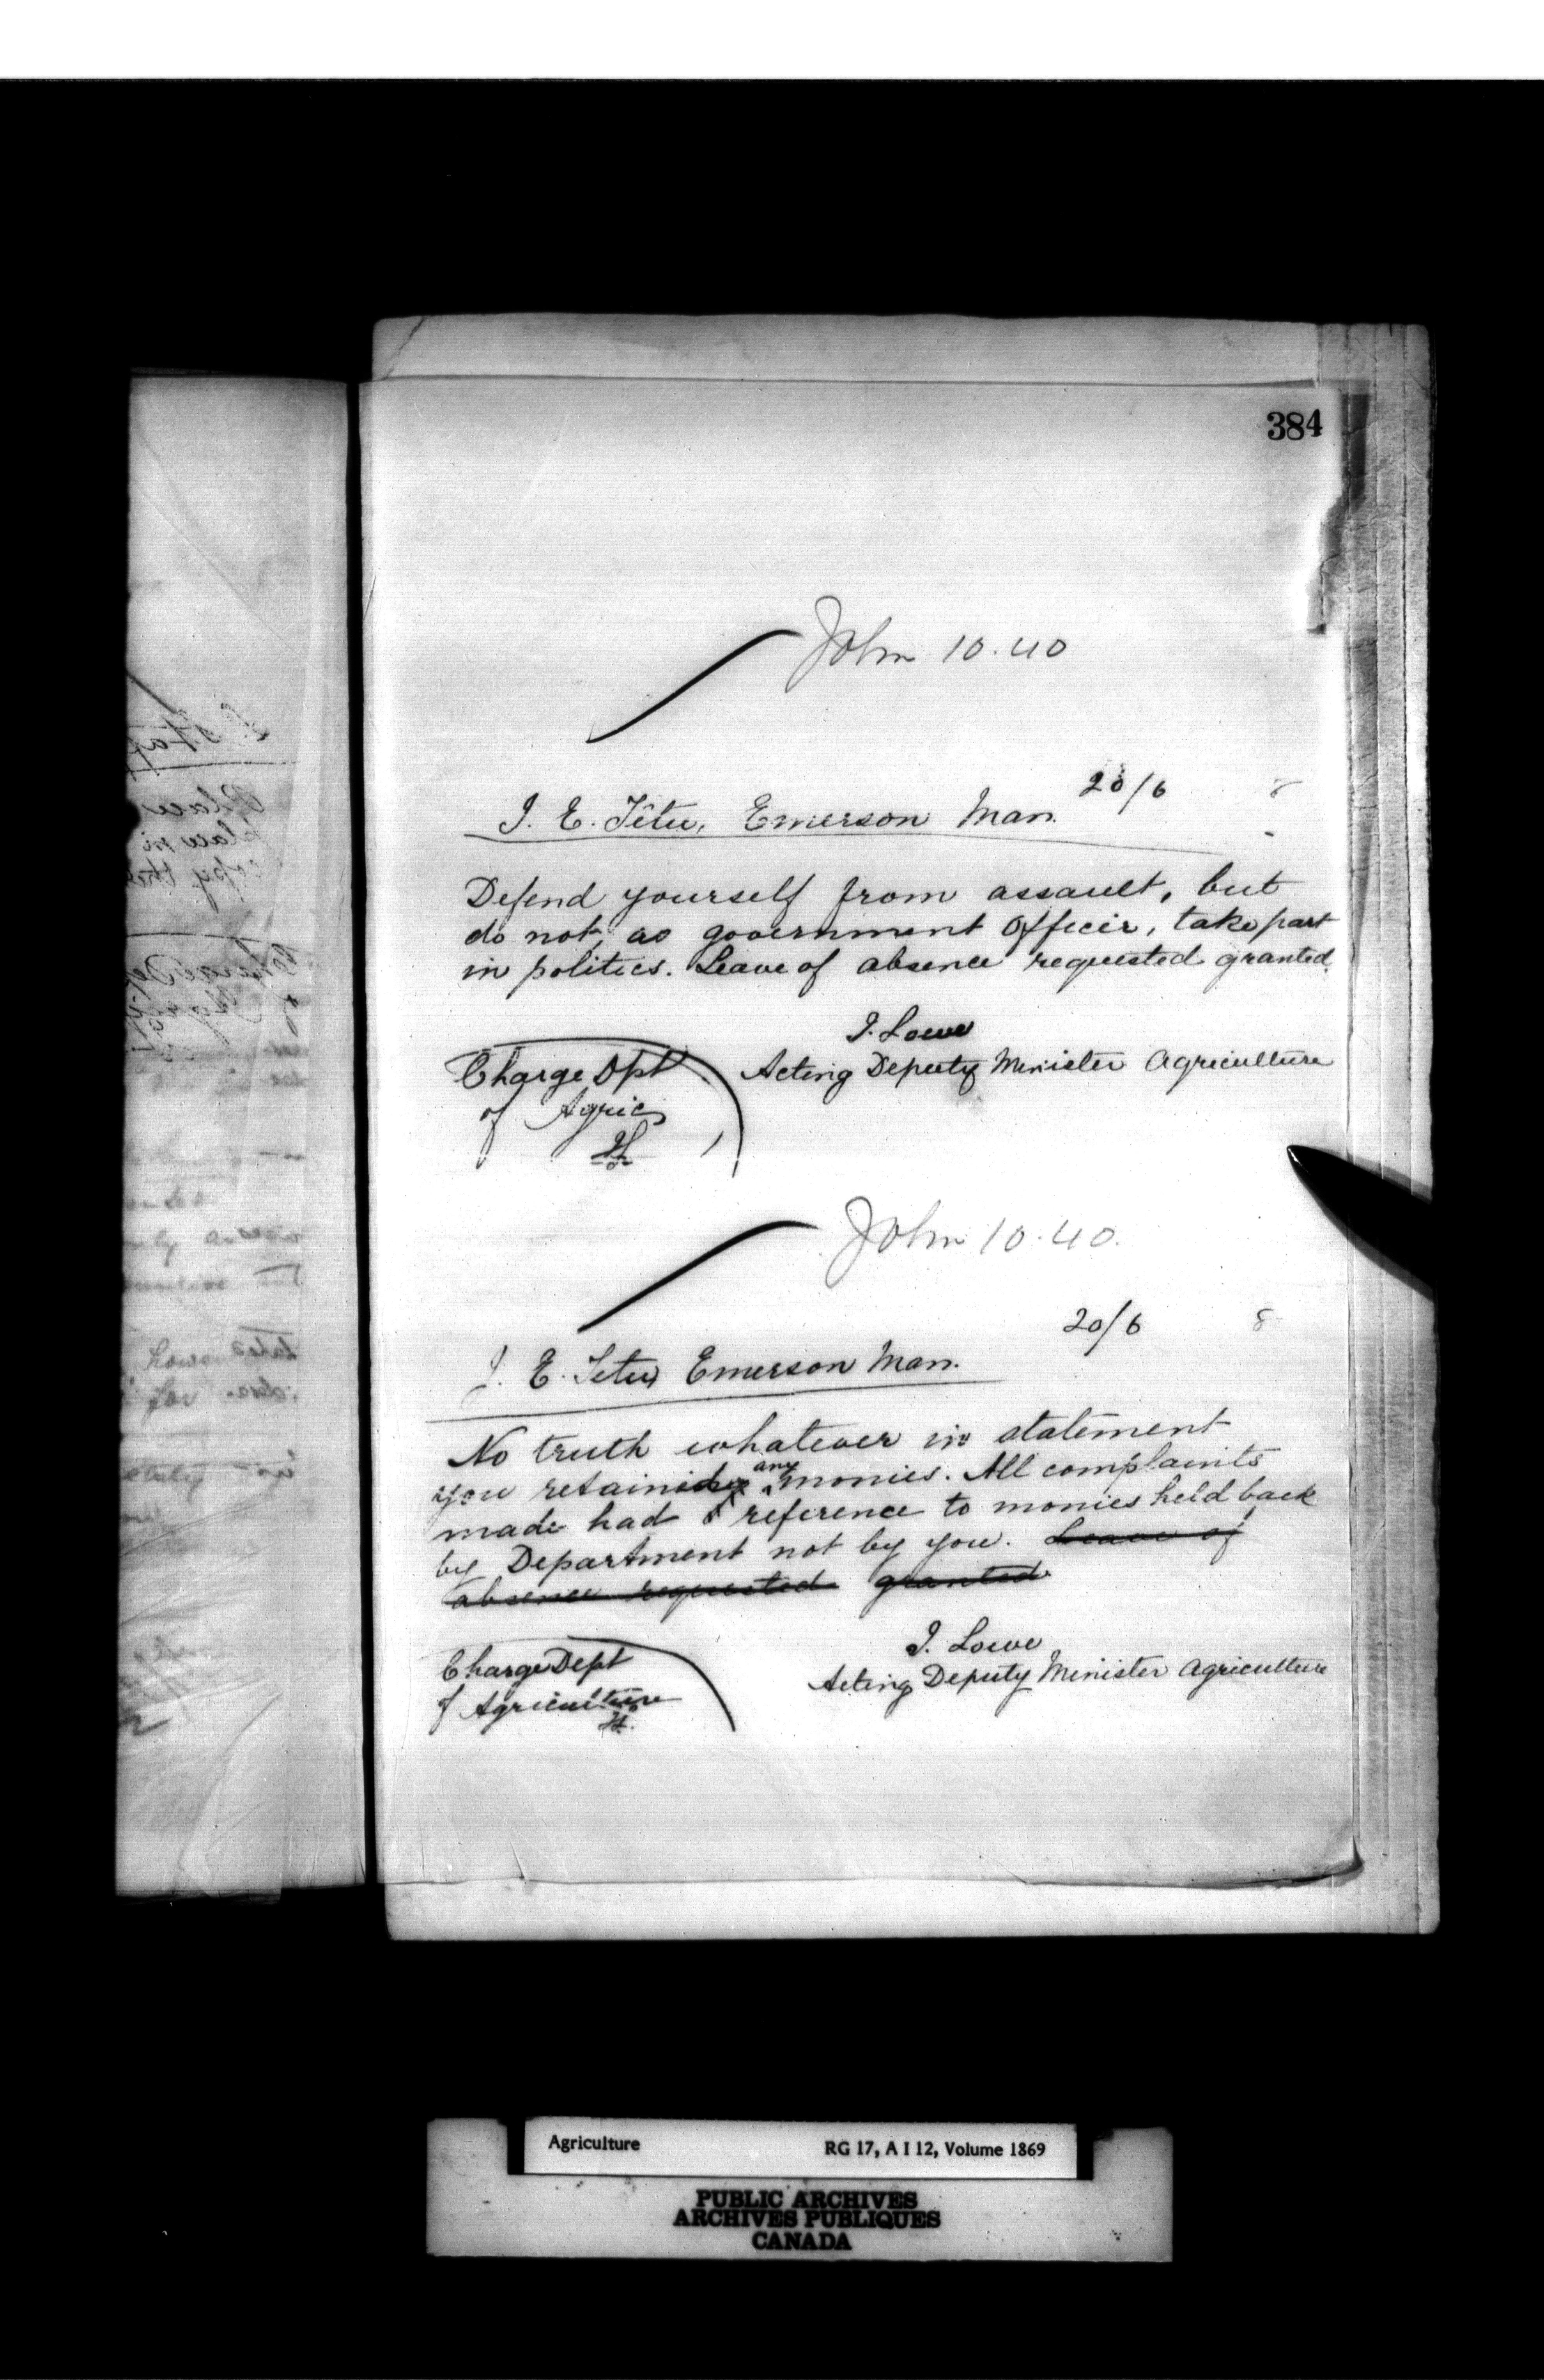 384
John 10.40
20/6 8
J. E. Têtu, Emerson Man.
Defend yourself from assault, but
do not, as government officer, take part
in politics. Leave of absence requested granted.
J. Lowe
Acting Deputy Minister Agriculture
Charge Dpt
of Agric
John 10.40.
20/6 8
J. E. Tetu, Emerson Man.
No truth whatever in statement
you retained any monies. All complaints
made had reference to monies held back
by Department not by you. Leave of
absence requested granted
J. Lowe
Acting Deputy Minister Agriculture
Charge Dept
of Agriculture
Agriculture RG 17, A I 12, Volume 1869
PUBLIC ARCHIVES
ARCHIVES PUBLIQUES
CANADA